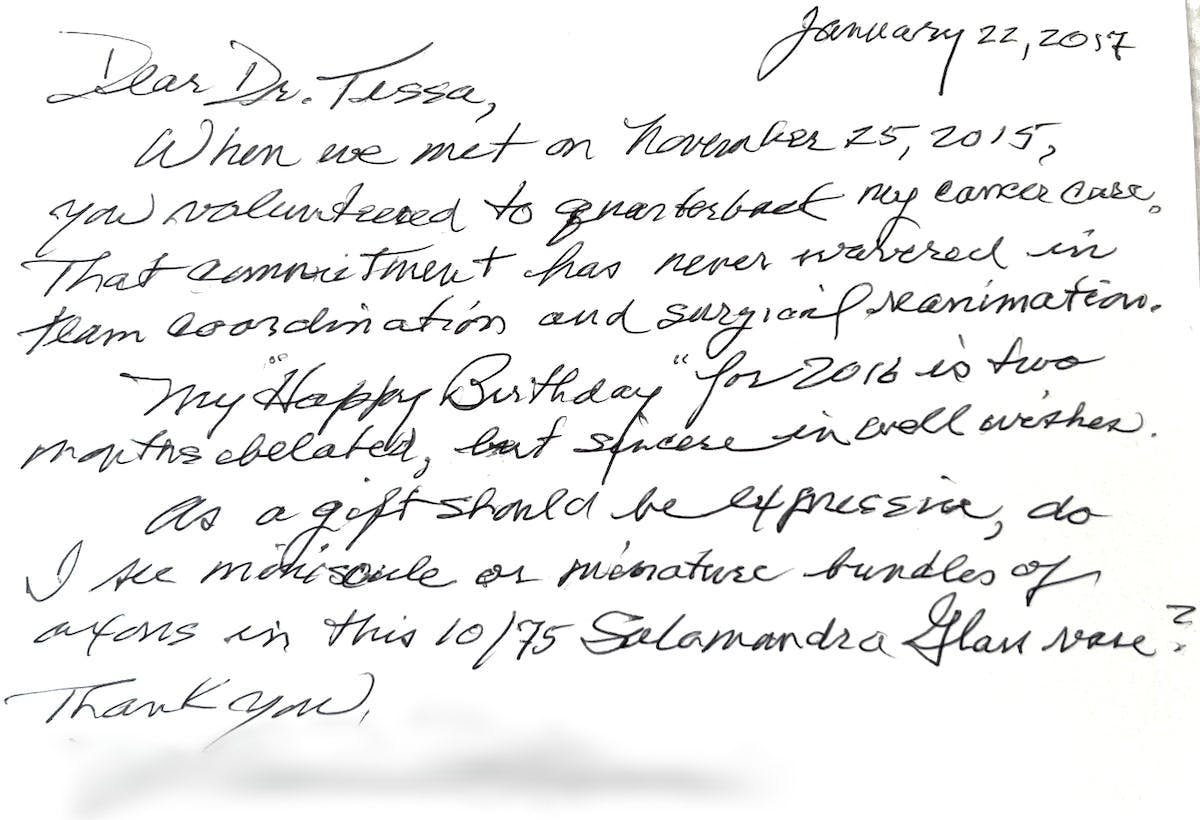 January 22, 2017
Dear Dr. Tessa,
When we met on November 25, 2015,
you volunteered to quarterback my cancer case.
That commitment has never wavered in
team coordination and surgical reanimation.
My "Happy Birthday" for 2016 is two
months belated, but sincere in well wishes.
As a gift should be expressive, do
I see miniscule or minature bundles of
axons in this 10/75 Salamandra Glass vase?
Thank you,